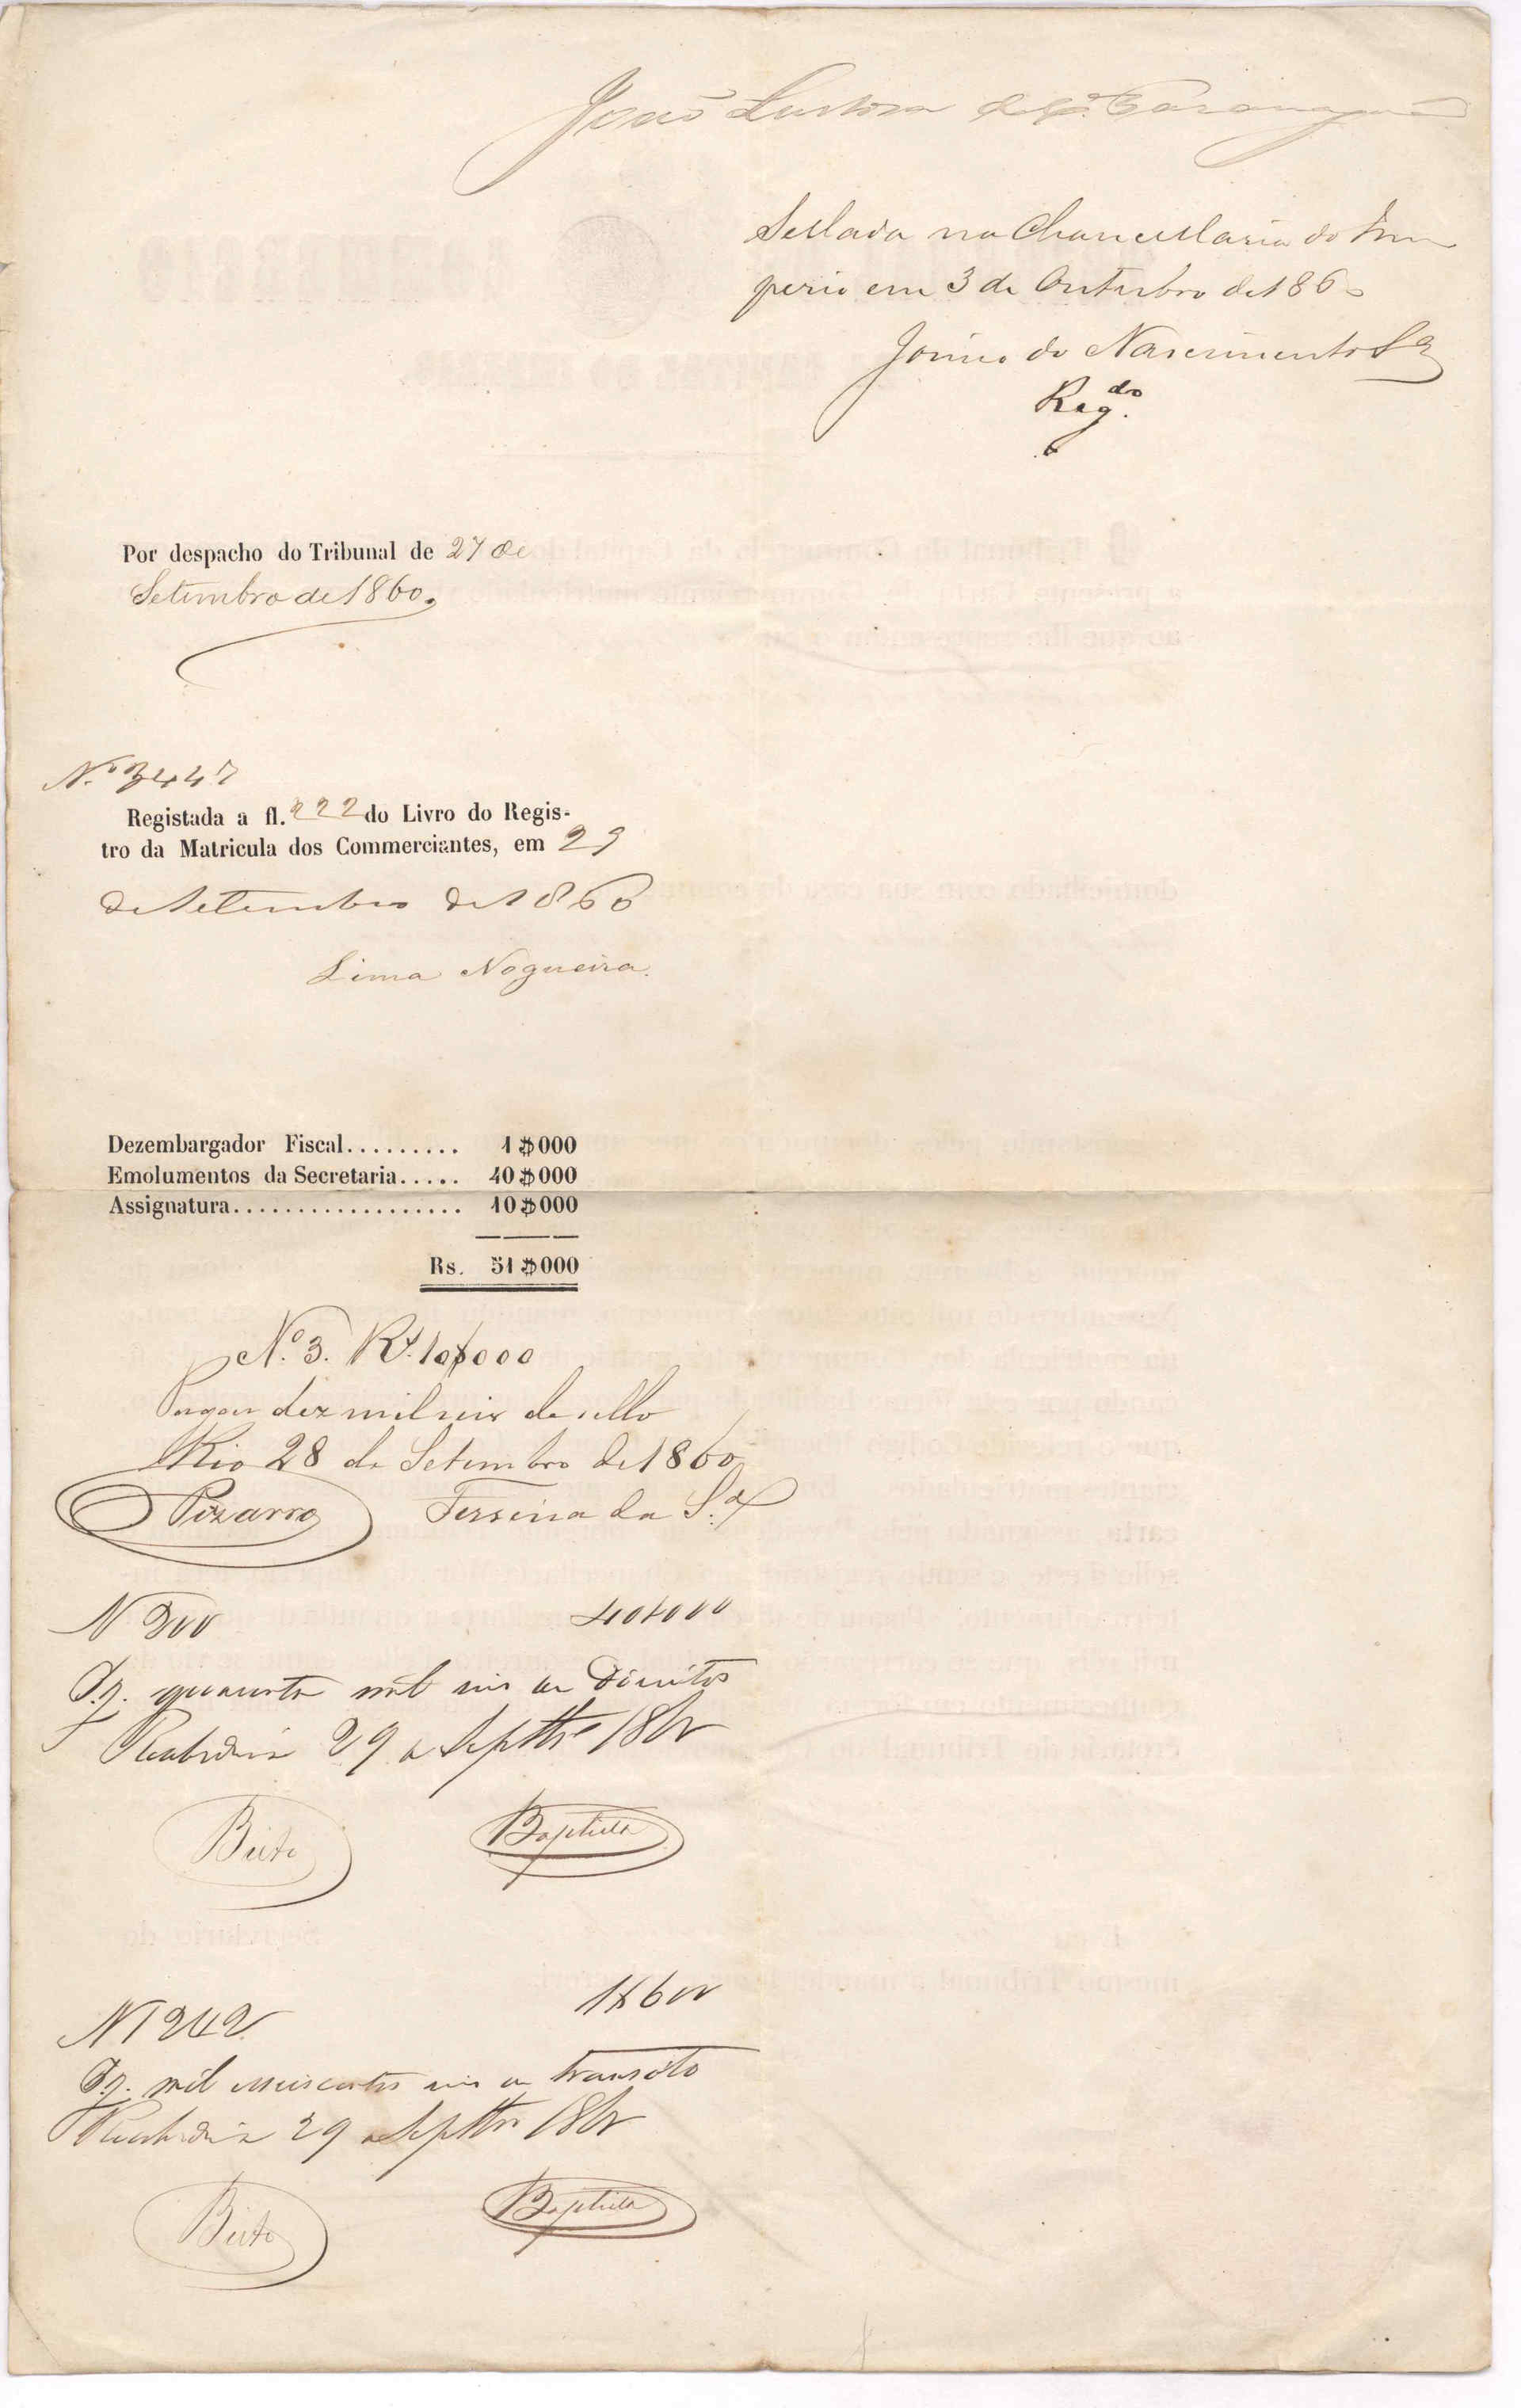 João Lustosa da Cª Paranaguá
Sellada na Chancellaria do Im
perio em 3 de Outubro de 1860
do Nascimento Sª
Regdo.
Por despacho do Tribunal de 27 de
Setembro de 1860.
N.º 3447
Registada a fl. 222 do Livro do Regis-
tro da Matricula dos Commerciantes, em 29
de Setembro de 1860
Lima Nogueira.
Dezembargador Fiscal......... 1$000
Emolumentos da Secretaria..... 40$000
Assignatura.................. 10$000
Rs. 51$000
N.º 3. Rs. 10$000
Pagou dez mil reis de sello
Rio 28 de Setembro de 1860
Pizarro Ferreira da S.ª
N 300 40$000
Pg. quarenta mil reis de Direitos
Recebedoria 29 de Septbro 1860
Brito Baptista
N 1242 1$600
Pg. mil seiscentos reis de transito
Recebedoria 29 de Septbro 1860
Brito Baptista